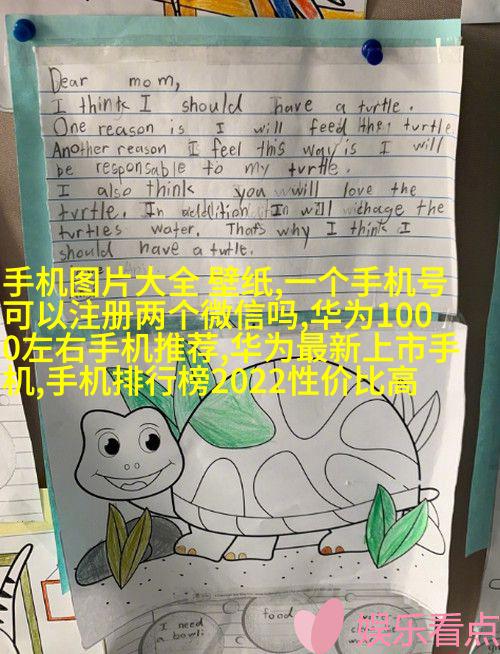 Dear mom,
I think I should have a turtle.
One reason is I will feed the turtle.
Another reason I feel this way is I will
be responsable to my turtle.
I also think you will love the
turtle. In addition In will chage the
turtles water. Thats why I think I
should have a turtle.
手机图片大全 壁纸,一个手机号
可以注册两个微信吗,华为100
0左右手机推荐,华为最新上市手
机,手机排行榜2022性价比高
I need
a bowl
food
娱乐看点